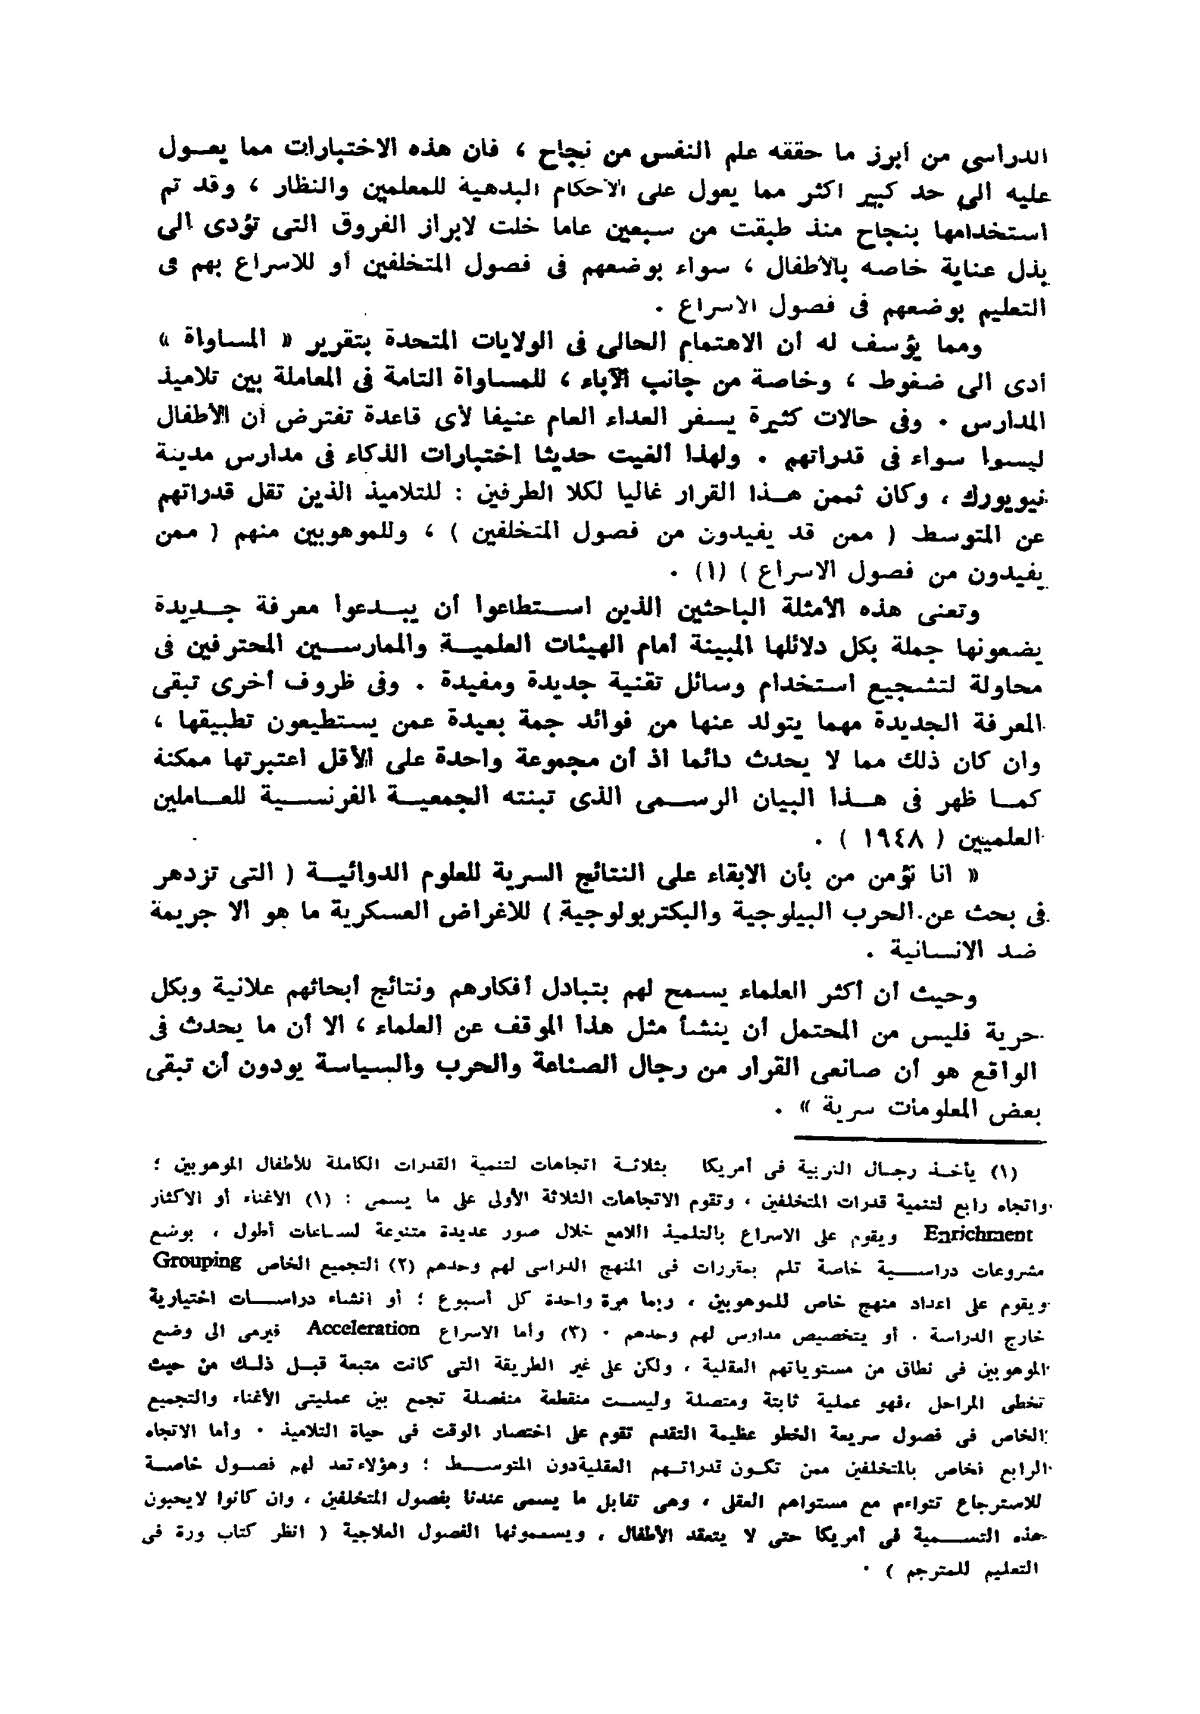 الدراسى من أبرز ما حققه علم النفس من نجاح ، فان هذه الاختبارات مما يعـول
عليه الى حد كبير اكثر مما يعول على الأحكام البدهية للمعلمين والنظار ، وقد تم
استخدامها بنجاح منذ طبقت من سبعين عاما خلت لابراز الفروق التى تؤدى الى
بذل عناية خاصه بالأطفال ، سواء بوضعهم فى فصول المتخلفين أو للاسراع بهم فى
التعليم بوضعهم فى فصول الاسراع .
ومما يؤسف له أن الاهتمام الحالى فى الولايات المتحدة بتقرير « المساواة »
أدى الى ضغوط ، وخاصة من جانب الآباء ، للمساواة التامة فى المعاملة بين تلاميذ
المدارس . وفى حالات كثيرة يسفر العداء العام عنيفا لأى قاعدة تفترض أن الأطفال
ليسوا سواء فى قدراتهم . ولهذا ألغيت حديثا اختبارات الذكاء فى مدارس مدينة
نيويورك ، وكان ثمن هـذا القرار غاليا لكلا الطرفين : للتلاميذ الذين تقل قدراتهم
عن المتوسط ( ممن قد يفيدون من فصول المتخلفين ) ، وللموهوبين منهم ( ممن
يفيدون من فصول الاسراع ) (١) .
وتعنى هذه الأمثلة الباحثين الذين استطاعوا أن يبدعوا معرفة جـديدة
يضعونها جملة بكل دلائلها المبينة أمام الهيئات العلمية والممارسين المحترفين فى
محاولة لتشجيع استخدام وسائل تقنية جديدة ومفيدة . وفى ظروف أخرى تبقى
المعرفة الجديدة مهما يتولد عنها من فوائد جمة بعيدة عمن يستطيعون تطبيقها ،
وان كان ذلك مما لا يحدث دائما اذ أن مجموعة واحدة على الأقل اعتبرتها ممكنة
كمـا ظهر فى هـذا البيان الرسمى الذى تبنته الجمعية الفرنسية للعـاملين
العلميين ( ١٩٤٨ ) .
« انا نؤمن من بأن الابقاء على النتائج السرية للعلوم الدوائية ( التى تزدهر
فى بحث عن الحرب البيلوجية والبكتربولوجية ) للاغراض العسكرية ما هو الا جريمة
ضد الانسانية .
وحيث أن أكثر العلماء يسمح لهم بتبادل أفكارهم ونتائج أبحاثهم علانية وبكل
حرية فليس من المحتمل أن ينشأ مثل هذا الموقف عن العلماء ، الا أن ما يحدث فى
الواقع هو أن صانعى القرار من رجال الصناعة والحرب والسياسة يودون أن تبقى
بعض المعلومات سرية » .
(١) يأخـذ رجـال التربية فى أمريكا بثلاثـة اتجاهات لتنمية القدرات الكاملة للأطفال الموهوبين ؛
واتجاه رابع لتنمية قدرات المتخلفين ، وتقوم الاتجاهات الثلاثة الأولى على ما يسمى : (١) الأغناء أو الاكثار
Enrichment ويقوم على الاسراع بالتلميذ اللامع خلال صور عديدة متنوعة لساعات أطول ، بوضع
مشروعات دراسـية خاصة تلم بمقررات فى المنهج الدراسى لهم وحدهم (٢) التجميع الخاص Grouping
ويقوم على اعداد منهج خاص للموهوبين ، وربما مرة واحدة كل أسبوع ؛ أو انشاء دراسـات اختيارية
خارج الدراسة . أو يتخصيص مدارس لهم وحدهم . (٣) وأما الاسراع Acceleration فيرمى الى وضع
الموهوبين فى نطاق من مستوياتهم العقلية ، ولكن على غير الطريقة التى كانت متبعة قبـل ذلـك من حيث
تخطى المراحل ،فهو عملية ثابتة ومتصلة وليسـت منقطعة منفصلة تجمع بين عمليتى الأغناء والتجميع
الخاص فى فصول سريعة الخطو عظيمة التقدم تقوم على اختصار الوقت فى حياة التلاميذ . وأما الاتجاه
الرابع فخاص بالمتخلفين ممن تكـون قدراتـهم العقليةدون المتوسـط ؛ وهؤلاء تعد لهم فصـول خاصـة
للاسترجاع تتواءم مع مستواهم العقلى ، وهى تقابل ما يسمى عندنا بفصول المتخلفين ، وان كانوا لايحبون
هذه التسـمية فى أمريكا حتى لا يتعقد الأطفال ، ويسـمونها الفصول العلاجية ( انظر كتاب ورة فى
التعليم للمترجم ) .